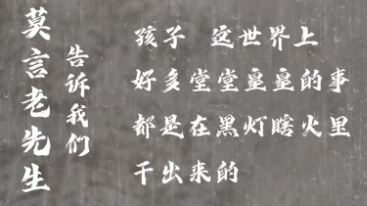 莫言老先生
告诉我们
孩子 这世界上
好多堂堂皇皇的事
都是在黑灯瞎火里
干出来的